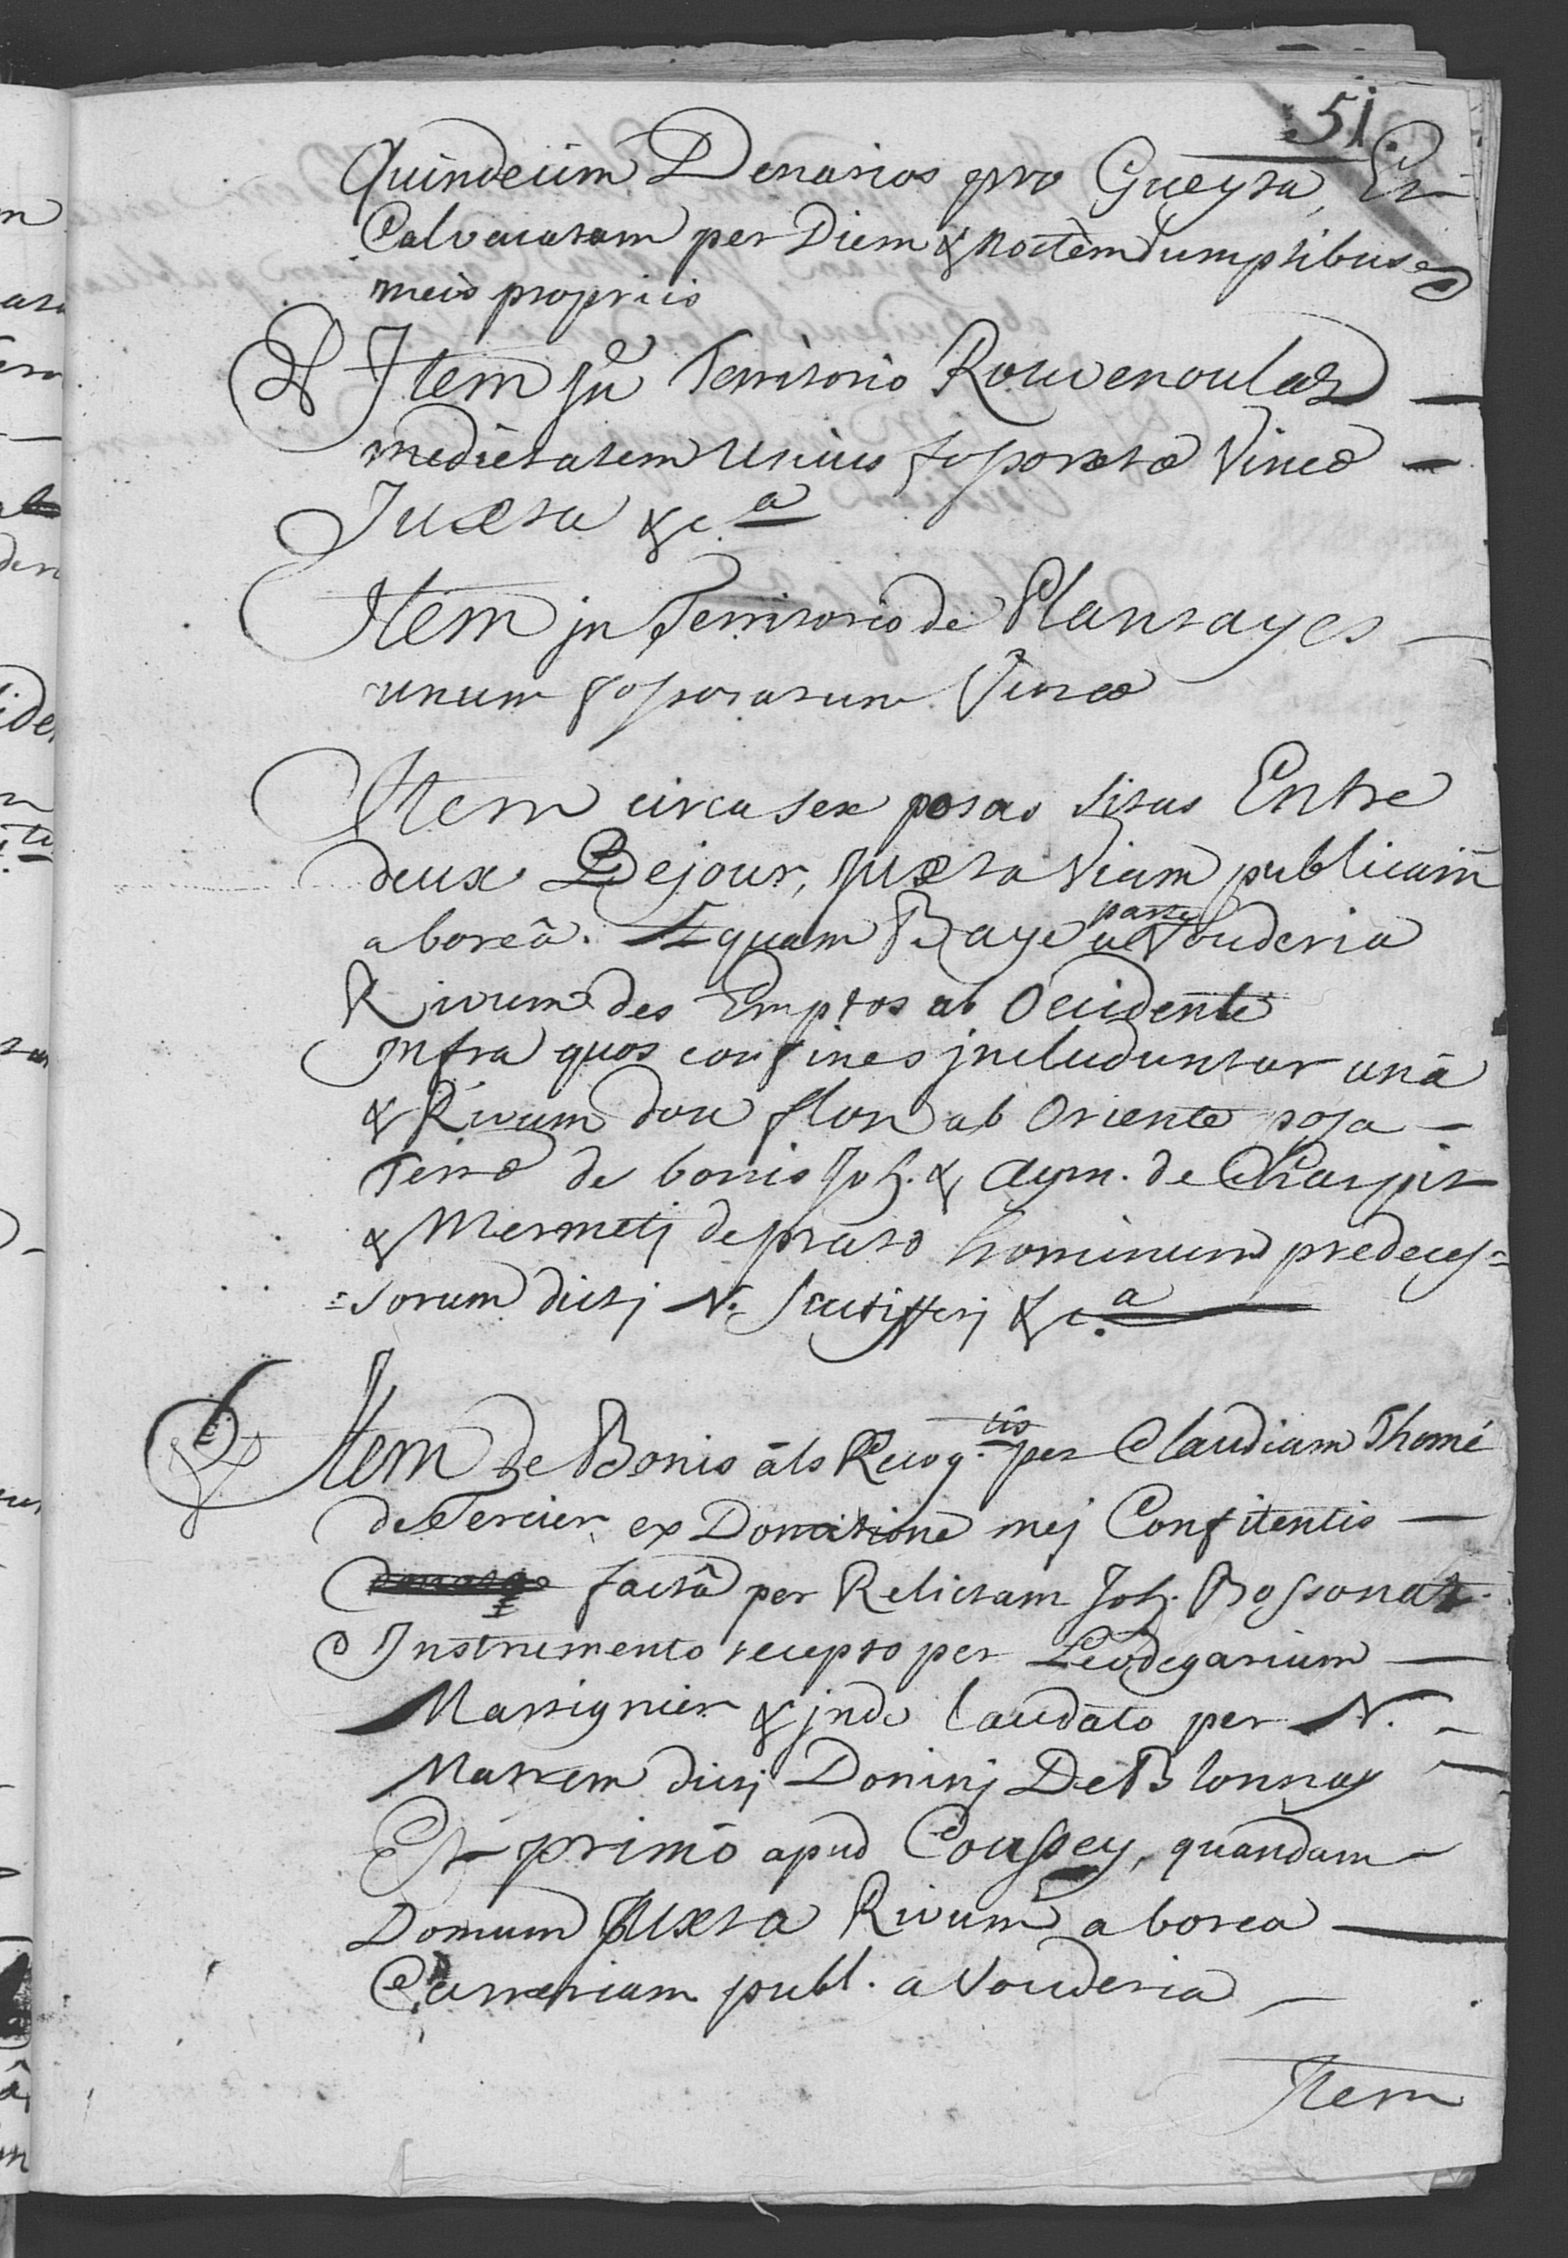 51.
Quindecim Denarios pro Gueyta, Et
Calvacatam per Diem & Noctem sumptibus
meis propriis
& Item in Territorio Rouvenoulaz
medietatem Unius foporatæ Vineæ
Juxta &c.a
Item in Territorio de Plantayes
unum foporatum Vineæ
Item circa sex posas sitas Entre
deux Bejour, juxta Viam publicam
a boreâ. Aquam Baye parte a Vouderia
Rivum des Emptos ab Occidente
Infra quos confines includuntur unâ
& Rivum dou flon ab Oriente posa
Terræ de bonis Joh. & Aym. de Charpit
& Mermetj de prato hominum predeces=
=sorum dictj N. scutifferj &c.a
Item de Bonis als Recog.tis per Claudiam Thomé
de Tercier ex Donatione mej Confitentis
factâ per Relictam Joh. Bossonat
Instrumento recepto per Leodegarium
Martignier & inde laudato per N.
Matrem dictj Dominj De Blonnay
Et primò apud Coussey, quandam
Domum juxta Rivum a borea
Carreriam publ. a Vouderia
Item